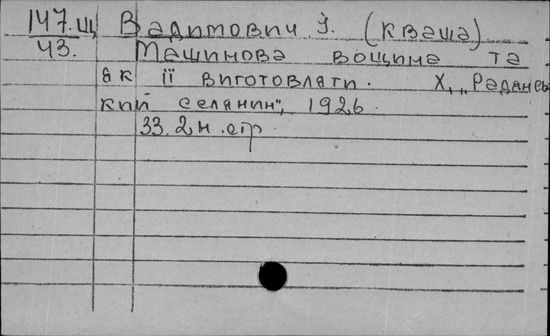 147.щ Вадимович І. (Кваша)
43. Машинова вощина та
як її виготовляти. Х., „Радянсь
кий селянин", 1926.
33. 2н. стр.